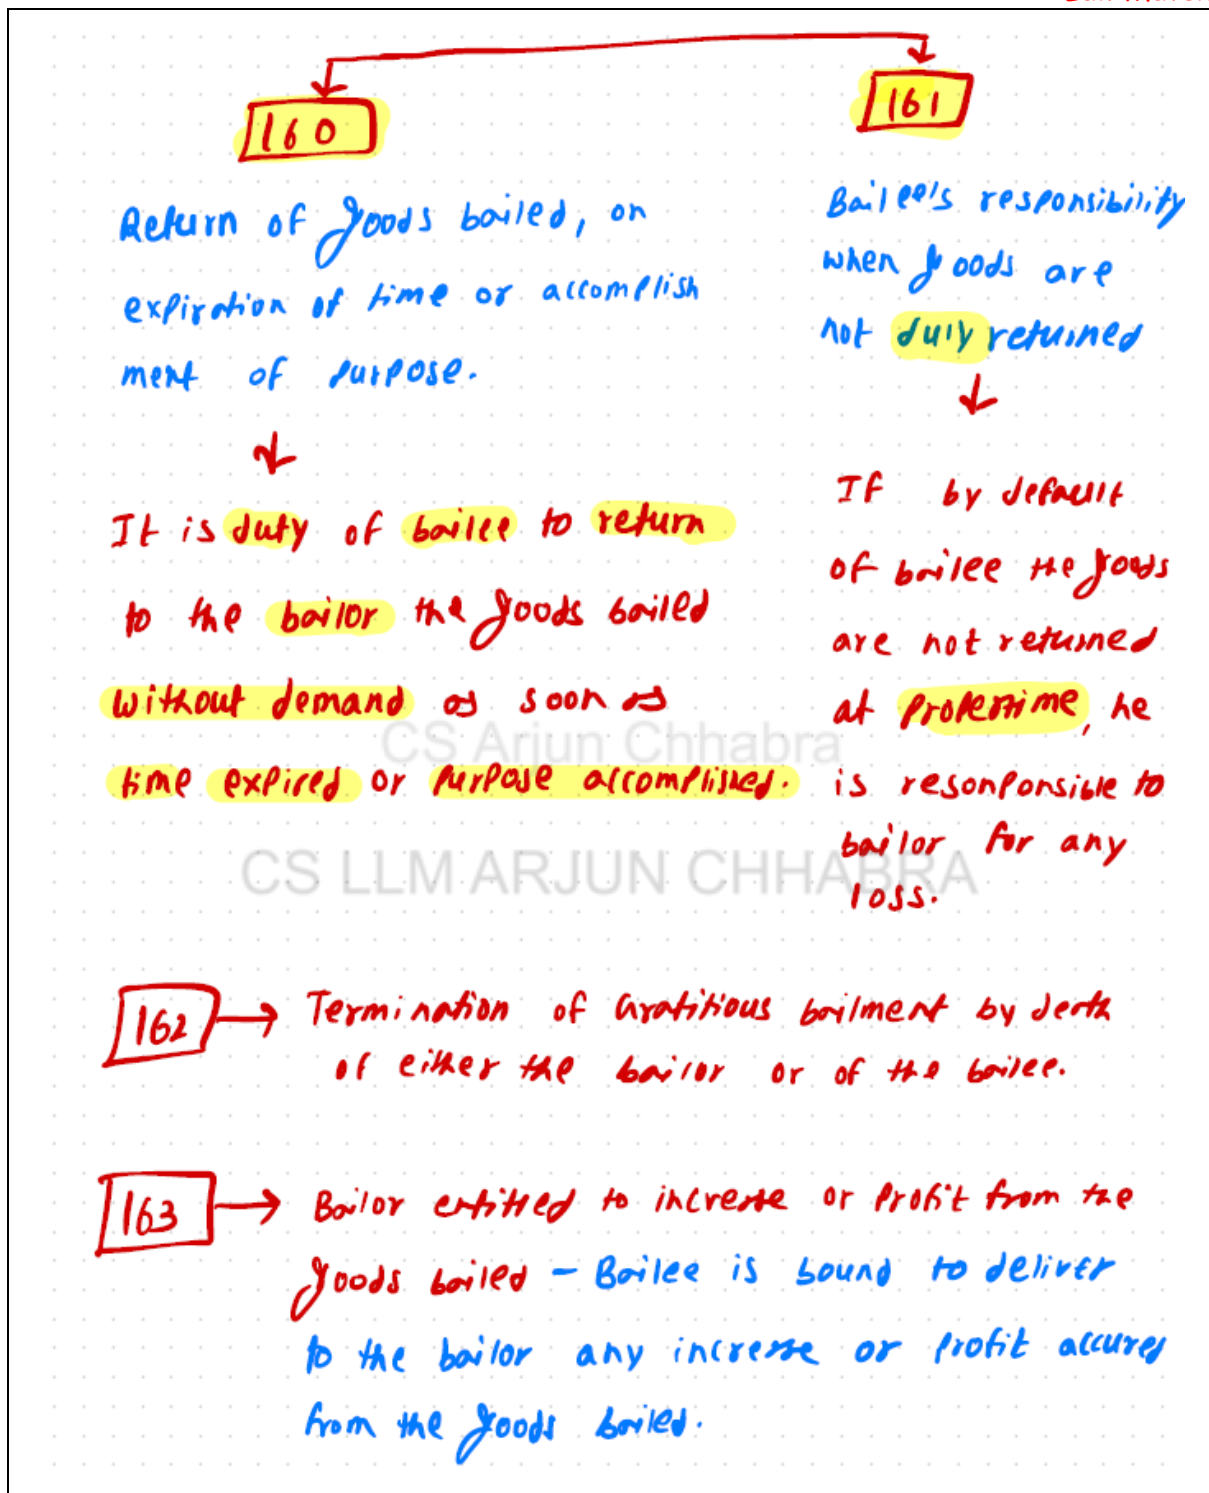 160
Return of goods bailed, on
expiration of time or accomplish
ment of purpose.
It is duty of bailee to return
to the bailor the goods bailed
without demand as soon as
time expired or purpose accomplished.
161
Bailee's responsibility
when goods are
not duly returned
If by default
of bailee the goods
are not returned
at proper time, he
is resonponsible to
bailor for any
loss.
CS Arjun Chhabra
CS LLM ARJUN CHHABRA
162 Termination of Gratitious bailment by death
of either the bailor or of the bailee.
163 Bailor entitled to increase or profit from the
goods bailed - Bailee is bound to deliver
to the bailor any increase or profit accures
from the goods bailed.